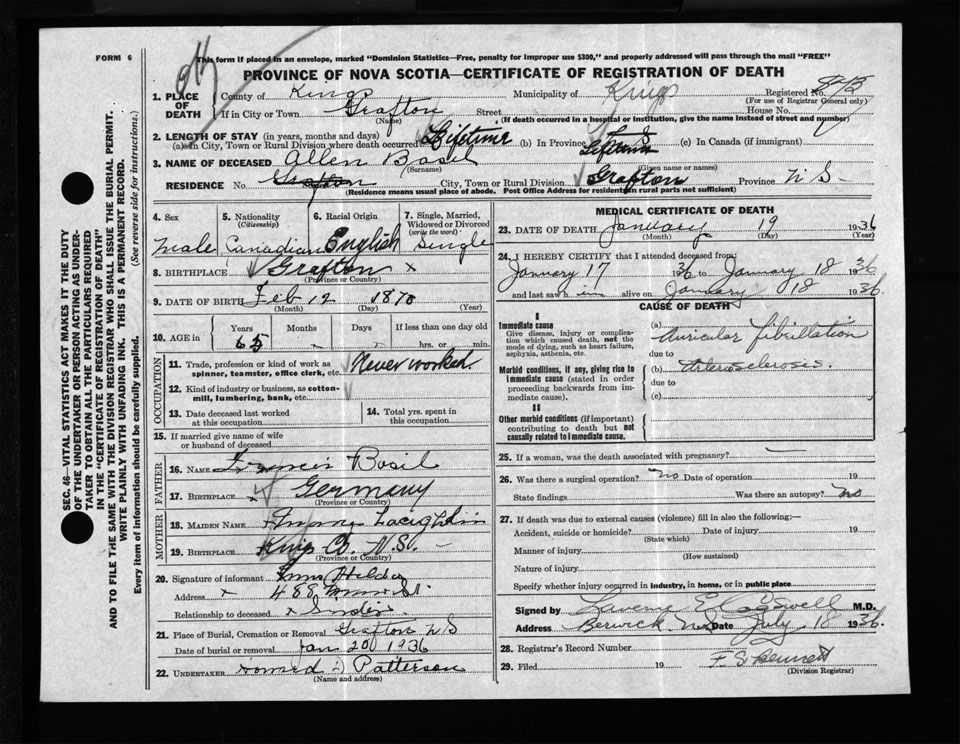 FORM 6
This form if placed in an envelope, marked "Dominion Statistics—Free, penalty for improper use $300," and properly addressed will pass through the mail "FREE"
PROVINCE OF NOVA SCOTIA—CERTIFICATE OF REGISTRATION OF DEATH
SEC. 46—VITAL STATISTICS ACT MAKES IT THE DUTY
OF THE UNDERTAKER OR PERSON ACTING AS UNDER-
TAKER TO OBTAIN ALL THE PARTICULARS REQUIRED
IN THE "CERTIFICATE OF REGISTRATION OF DEATH"
AND TO FILE THE SAME WITH THE DIVISION REGISTRAR WHO SHALL ISSUE THE BURIAL PERMIT.
WRITE PLAINLY WITH UNFADING INK. THIS IS A PERMANENT RECORD.
Every item of information should be carefully supplied. (See reverse side for instructions.)
1. PLACE OF DEATH County of Kings Municipality of Kings Registered No.
(For use of Registrar General only)
If in City or Town Grafton Street House No.
(Name) (If death occurred in a hospital or institution, give the name instead of street and number)
2. LENGTH OF STAY (in years, months and days)
(a) In City, Town or Rural Division where death occurred Lifetime (b) In Province Lifetime (c) In Canada (if immigrant)
3. NAME OF DECEASED Allen Basil
(Surname) (Given name or names)
RESIDENCE No. Grafton City, Town or Rural Division Grafton Province N S
(Residence means usual place of abode. Post Office Address for residents in rural parts not sufficient)
4. Sex Male
5. Nationality (Citizenship) Canadian
6. Racial Origin English
7. Single, Married, Widowed or Divorced (write the word) Single
8. BIRTHPLACE Grafton x
(Province or Country)
9. DATE OF BIRTH Feb 12 1870
(Month) (Day) (Year)
10. AGE IN Years 65 Months - Days - If less than one day old
hrs. or min.
OCCUPATION
11. Trade, profession or kind of work as spinner, teamster, office clerk, etc. Never worked
12. Kind of industry or business, as cotton-mill, lumbering, bank, etc.
13. Date deceased last worked at this occupation
14. Total yrs. spent in this occupation
15. If married give name of wife or husband of deceased
FATHER
16. NAME Francis Basil
17. BIRTHPLACE x Germany
(Province or Country)
MOTHER
18. MAIDEN NAME
19. BIRTHPLACE Kings Co. N.S. -
(Province or Country)
20. Signature of informant
Address x 488
Relationship to deceased x
21. Place of Burial, Cremation or Removal Grafton N S
Date of burial or removal Jan 20 1936
22. UNDERTAKER Howard D Patterson
(Name and address)
MEDICAL CERTIFICATE OF DEATH
23. DATE OF DEATH January 19 1936
(Month) (Day) (Year)
24. I HEREBY CERTIFY that I attended deceased from:
January 17 1936 to January 18 1936
and last saw him alive on January 18 1936.
CAUSE OF DEATH
I
Immediate cause
Give disease, injury or complication which caused death, not the mode of dying, such as heart failure, asphyxia, asthenia, etc.
(a) Auricular fibrillation
due to
Morbid conditions, if any, giving rise to immediate cause (stated in order proceeding backwards from immediate cause).
(b) Arteriosclerosis.
due to
(c)
II
Other morbid conditions (if important) contributing to death but not causally related to immediate cause.
25. If a woman, was the death associated with pregnancy? —
26. Was there a surgical operation? no Date of operation 19
State findings Was there an autopsy? no
27. If death was due to external causes (violence) fill in also the following:—
Accident, suicide or homicide? Date of injury 19
(State which)
Manner of injury
(How sustained)
Nature of injury
Specify whether injury occurred in industry, in home, or in public place
Signed by E Cogswell M.D.
Address Berwick NS Date July 18 1936.
28. Registrar's Record Number
29. Filed 19 F. S. Bennett
(Division Registrar)